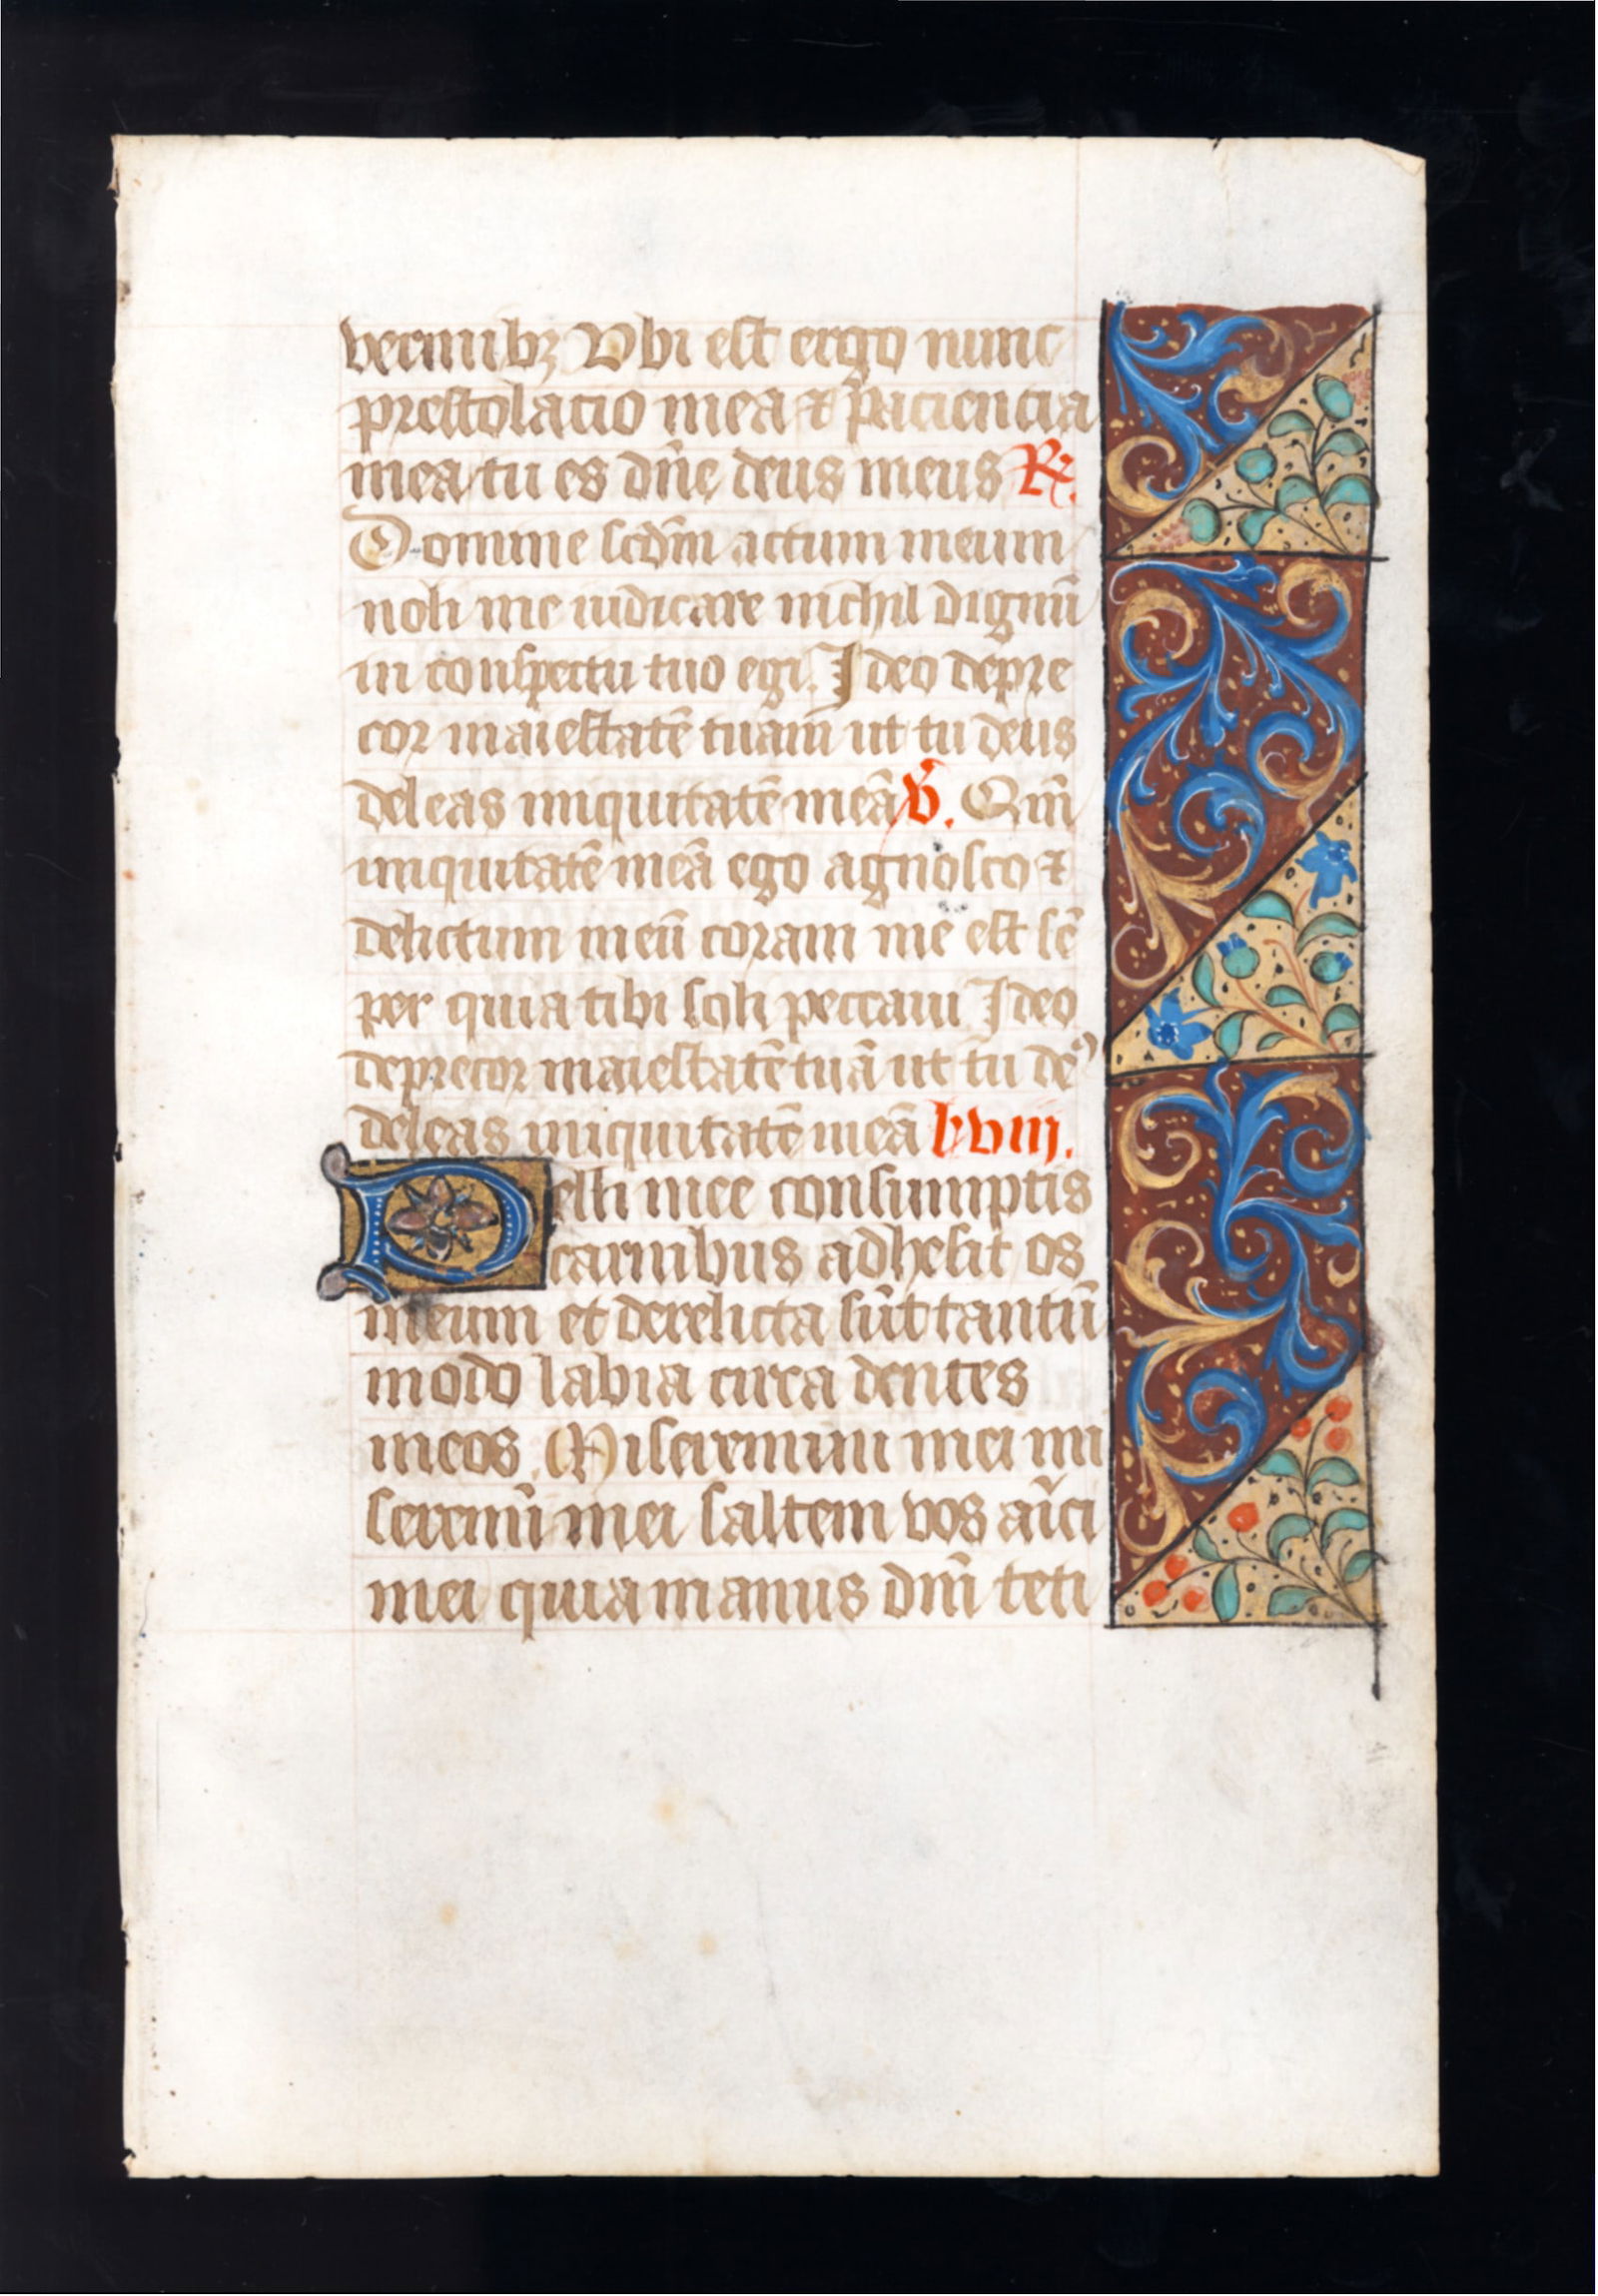 vermibꝫ Vbi est ergo nunc
prestolacio mea ⁊ paciencia
mea tu es dn̄e deus meus R̷.
Domine scd̄m actum meum
noli me iudicare nichil dignū
in conspectu tuo egi. Ideo depre
cor maiestatē tuam ut tu deus
deleas iniquitatē meā v̄. Qm̄
iniquitatē meā ego agnosco ⁊
delictum meū coram me est sē
per quia tibi soli peccaui Ideo
deprecor maiestatē tuā ut tu deꝰ
deleas iniquitatē meā lc̄ viii.
Pelli mee consumptis
carnibus adhesit os
meum et derelicta sūt tantū
modo labia circa dentes
meos. Miseremini mei mi
seremī mei saltem vos aīci
mei quia manus dn̄i teti